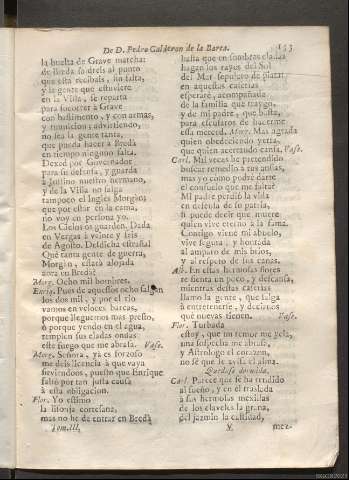 De D. Pedro Calderon de la Barca. 153
la buelta de Grave marcha:
de Breda saldreis al punto
que esta recibais, sin falta,
y la gente que estuviere
en la Villa, se reparta
para socorrer à Grave
con bastimento, y con armas,
y municion; advirtiendo,
no sea la gente tanta,
que pueda hacer à Breda
en tiempo ninguno falta.
Dexad por Governador
para su defensa, y guarda
à Justino nuestro hermano,
y de la Villa no salga
tampoco el Inglès Morgan;
que por estàr en la cama,
no voy en persona yo.
Los Cielos os guarden. Dada
en Vergas à veinte y seis
de Agosto. Desdicha estraña!
Què tanta gente de guerra,
Morgan, estarà alojada
aora en Breda?
Morg. Ocho mil hombres.
Enriq. Pues de aquestos ocho salgan
los dos mil, y por el rio
vamos en veloces barcas,
porque lleguemos mas presto,
ò porque yendo en el agua,
templen sus eladas ondas
este fuego que me abrasa. Vase.
Morg. Señora, yà es forzoso
me deis licencia à que vaya
sirviendoos, puesto que Enrique
faltò por tan justa causa
à esta obligacion.
Flor. Yo estimo
la lisonja cortesana,
mas no he de entrar en Breda
Tom.III.
hasta que en sombras eladas
hagan los rayos del Sol
del Mar sepulcro de plata:
en aquestas caserias
esperarè, acompañada
de la familia que traygo,
y de mi padre, que basta,
para escusaros de hacerme
essa merced. Morg. Mas agrada
quien obedeciendo yerra,
que quien acertando cansa. Vase.
Carl. Mil veces he pretendido
buscar remedio à tus ansias,
mas yo como podrè darte
el consuelo que me falta?
Mi padre perdiò la vida
en defensa de su patria,
si puede decir que muere
quien vive eterno à la fama.
Contigo viene mi abuelo,
vive segura, y honrada
al amparo de mis brios,
y al respeto de sus canas.
Alb. En estas hermosas flores
te sienta un poco, y descansa,
mientras destas caserias
llamo la gente, que salga
à entretenerte, y decirnos
què nuevas tienen. Vase.
Flor. Turbada
estoy, que un temor me yela,
una sospecha me abrasa,
y Astrologo el corazon,
no sè què le avisa al alma.
Quedase dormida.
Carl. Parece que se ha rendido
al sueño, y en el traslado
à sus hermosas mexillas
de los claveles la grana,
del jazmin la castidad,
V mez-